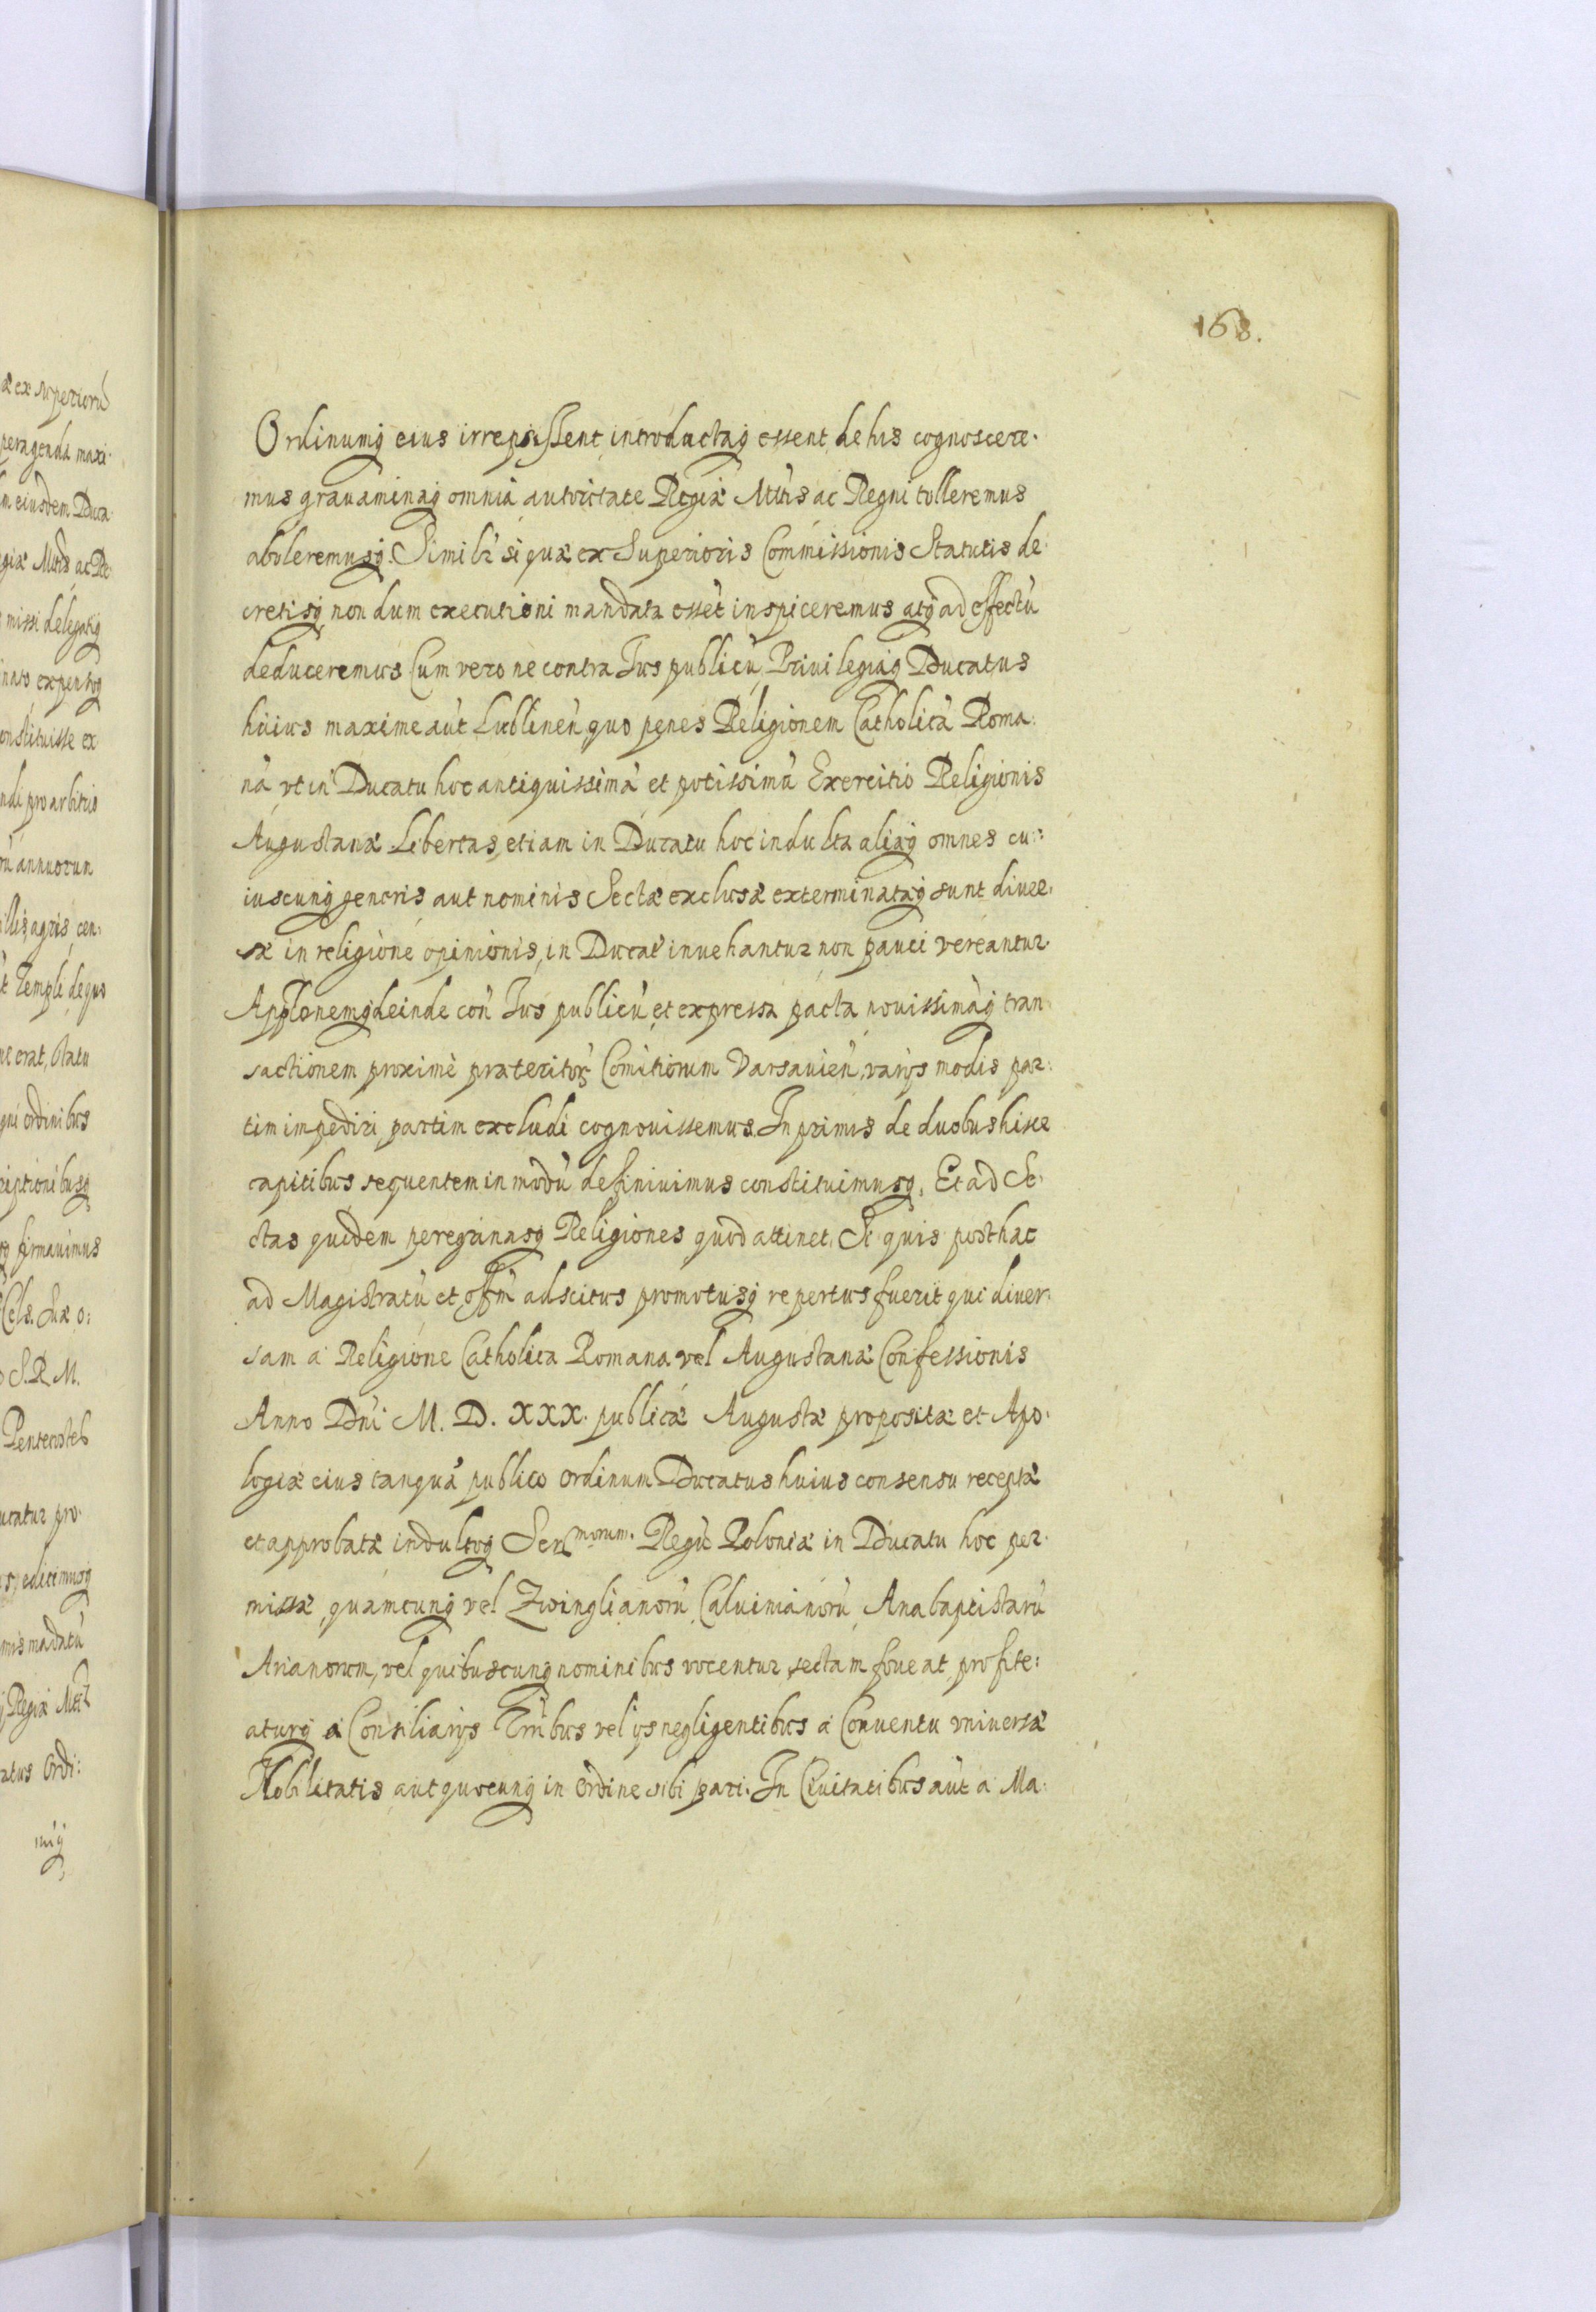 168.
Ordinumq́ eius irrepsissent, introductaq́ essent, de his cognoscere·
mus grauaminaq́ omnia autoritate Regiæ Mttis ac Regni tolleremus
aboleremusq́. Similr̃ si quæ ex Superioris Commissionis Statutis de·
cretisq́ non dum executioni mandata essēt inspiceremus atq́ ad effectū
deduceremus Cum vero ne contra Ius publicū, Priuilegiaq́ Ducatus
huius maxime aūt Lublineñ quo penes Religionem Catholicā Roma·
nā, vt in Ducatu hoc antiquissimā et potissimū Exercitio Religionis
Augustanæ Libertas, etiam in Ducatu hoc indulta aliæq́ omnes cu:
iuscunq́ generis aut nominis Sectæ exclusæ exterminatæq́ sunt diuer·
sæ in religione opinionis, in Ducatū inuehantur non pauci vereantur·
Applōnemq́ deinde coñ Ius publicū et expressa pacta nouissimāq́ tran·
sactionem proximè præteritorꝝ Comitiorum Varsauieñ, varijs modis par:
tim impediri partim excludi cognouissemus. Inprimis de duobus hisce
capitibus sequentem in modū definiuimus constituimusq́. Et ad Se·
ctas quidem peregrinasq́ Religiones quod attinet, Si quis posthac
ad Magistratū et offm̄ adscitus promotusq́ repertus fuerit qui diuer·
sam a Religione Catholica Romana vel Augustanæ Confessionis
Anno Dñi M. D. XXX. publicæ Augustæ propositæ et Apo·
logiæ eius tanquā publico Ordinum Ducatus huius consensu receptæ
et approbatæ indultoq́ Sermorum. Regū Poloniæ in Ducatu hoc per·
missæ, quamcunq́ vel Zwinglianorū, Caluinianorū, Anabaptistarū
Arianorum, vel quibuscunq́ nominibus vocentur, sectam foueat, profite:
aturq́ a Consiliarijs Trībus vel ijs negligentibus a Conuentu vniuersæ
Nobilitatis, aut quocunq́ in Ordine sibi pari. In Ciuitatibus aūt a Ma·